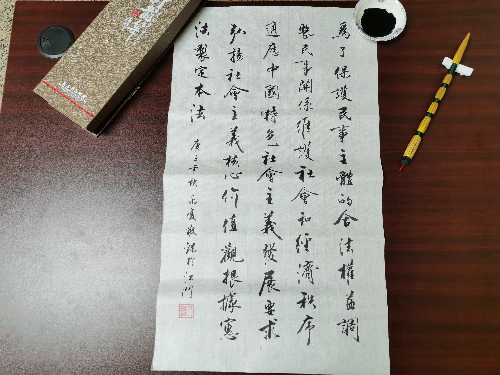 為了保護民事主體的合法權益調
整民事關係維護社會和經濟秩序
適應中國特色社會主義發展要求
弘揚社會主義核心價值觀根據憲
法製定本法
庚子年秋